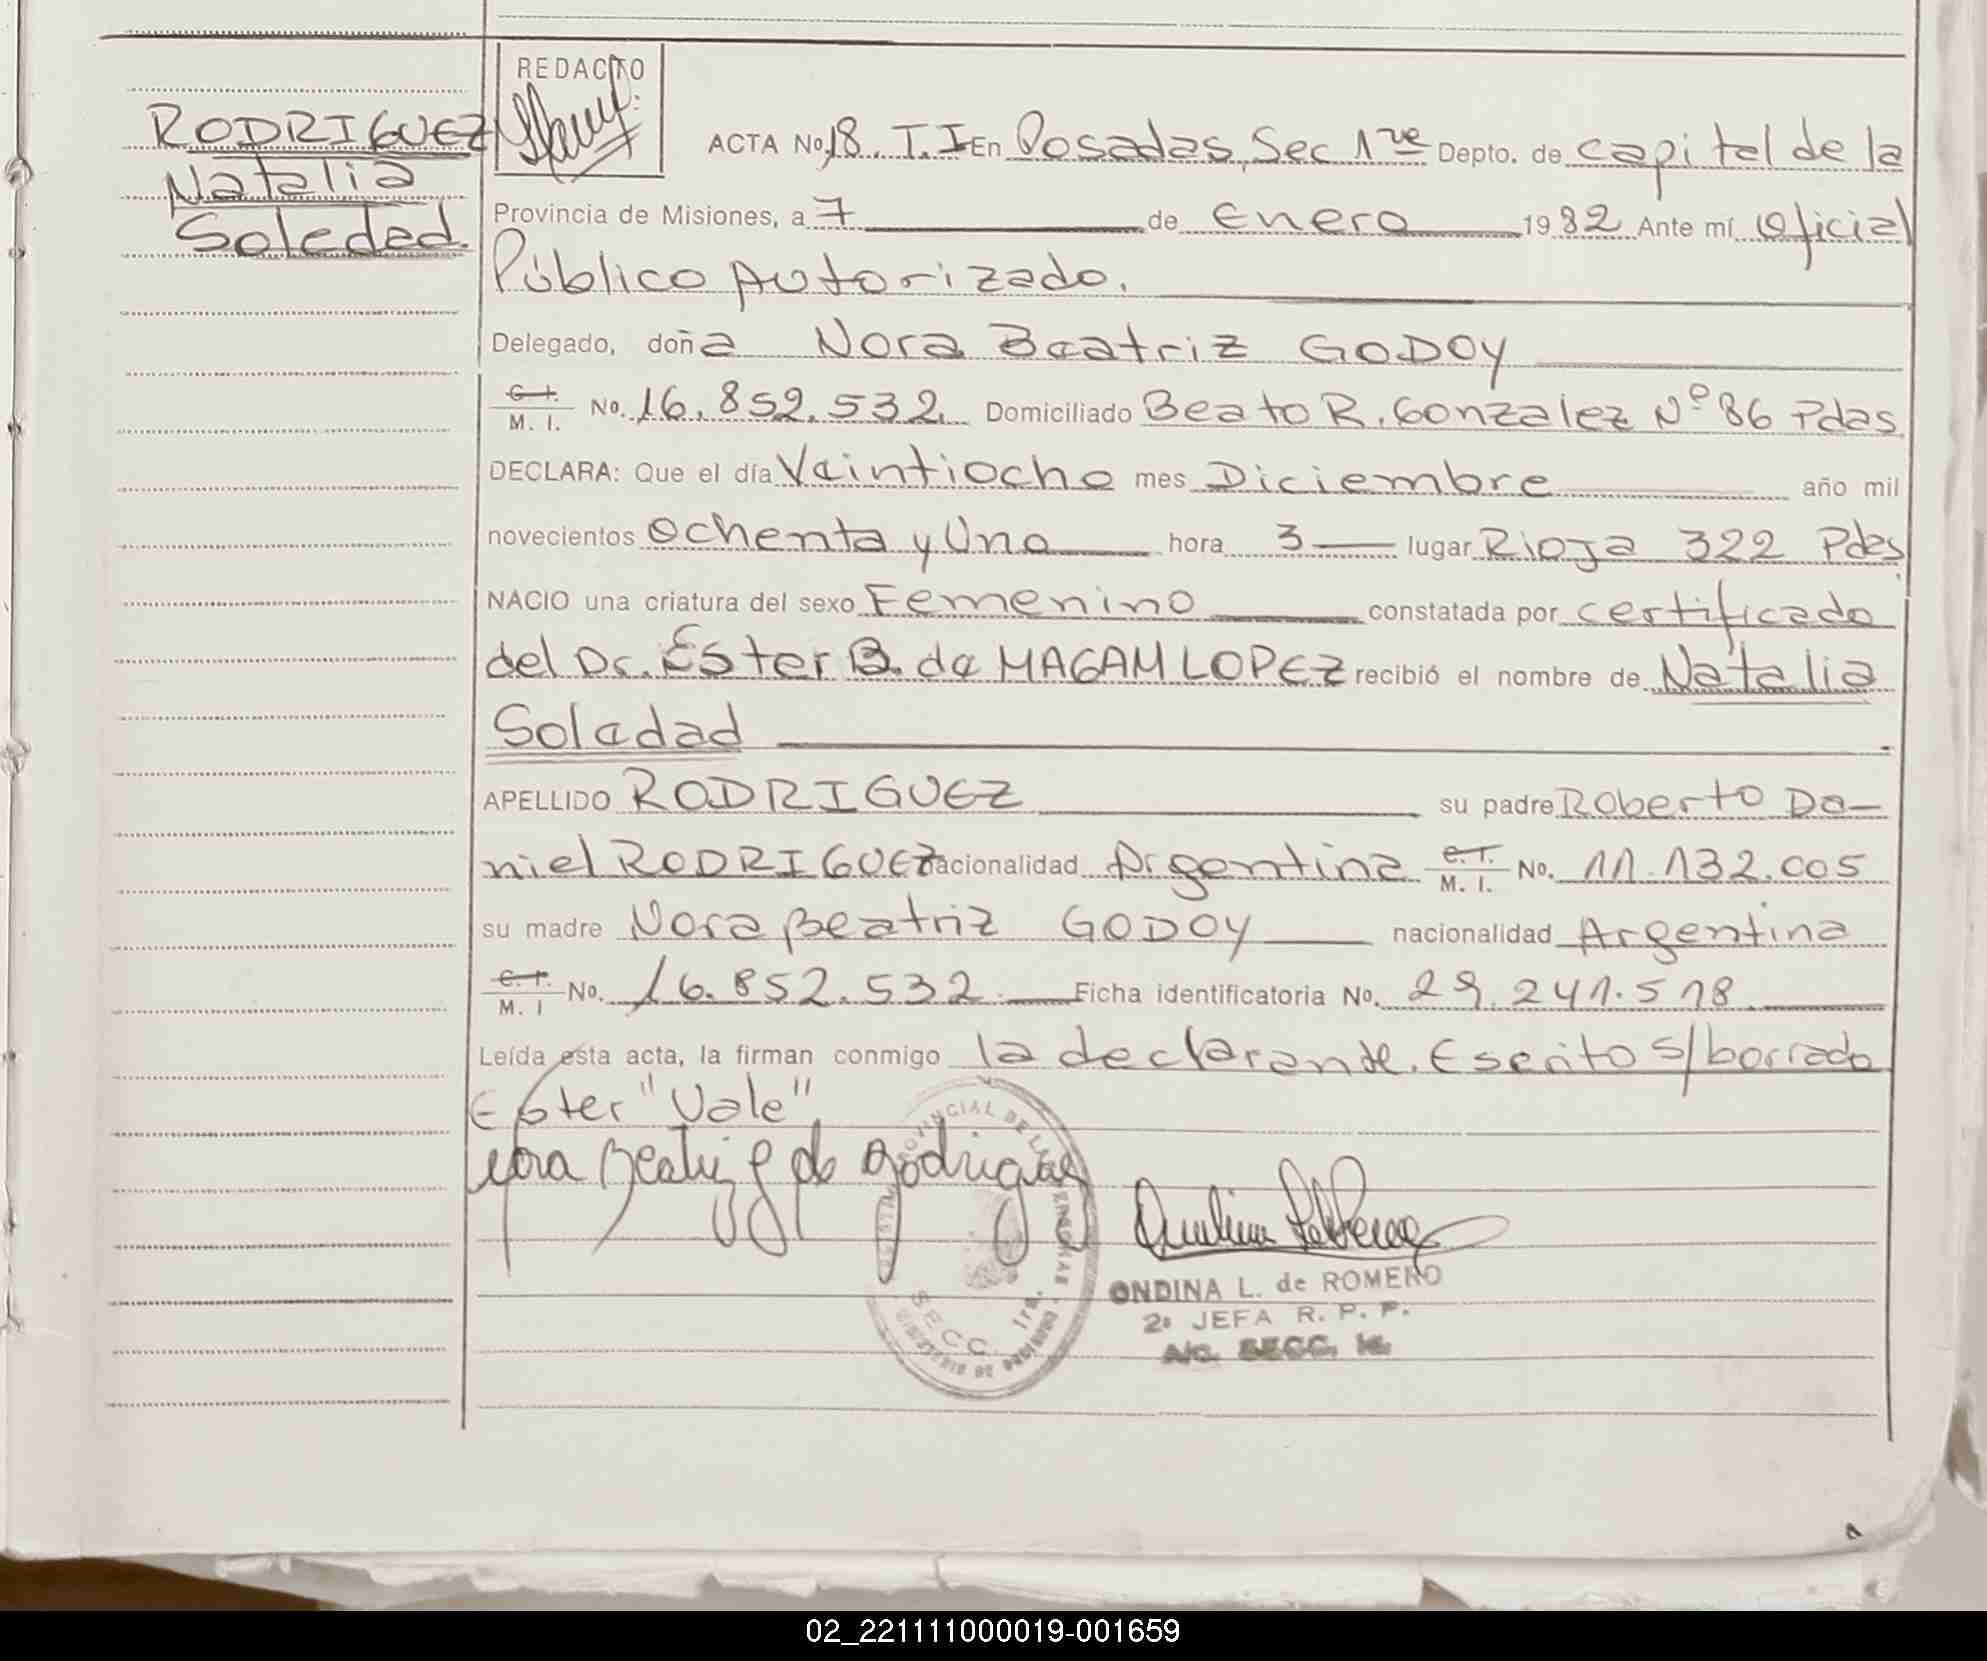 REDACTO
RODRIGUEZ
Natalia
Soledad.
ACTA No. 18. T. I En Posadas, Sec 1ra Depto. de Capital de la
Provincia de Misiones, a 7 de Enero 1982 Ante mí Oficial
Público Autorizado.
Delegado, doña Nora Beatriz GODOY
C. I. M. I. No. 16.852.532. Domiciliado Beato R. Gonzalez Nº 86 Pdas.
DECLARA: Que el día Veintiocho mes Diciembre año mil
novecientos Ochenta y Uno hora 3 lugar Rioja 322 Pdas
NACIO una criatura del sexo Femenino constatada por certificado
del Dr. Ester B. de MAGAM LOPEZ recibió el nombre de Natalia
Soledad
APELLIDO RODRIGUEZ su padre Roberto Da-
niel RODRIGUEZ nacionalidad Argentina C. I. M. I. No. 11.132.005
su madre Nora Beatriz GODOY nacionalidad Argentina
C. I. M. I No. 16.852.532. Ficha identificatoria No. 29.241.518
Leída esta acta, la firman conmigo la declarante. Escrito s/borrado
Ester "Vale"
Nora Beatriz G de Rodriguez
PROVINCIAL DE LAS PERSONAS
SECC. 1ra.
MINISTERIO DE GOBIERNO
ONDINA L. de ROMERO
2º JEFA R. P. P.
A/C. SECC. 1a.
02_221111000019-001659